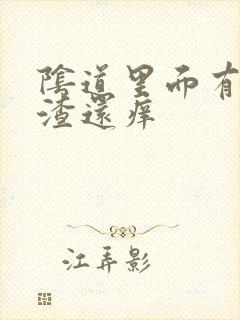 陰道里而有
渣還痒
江弄影